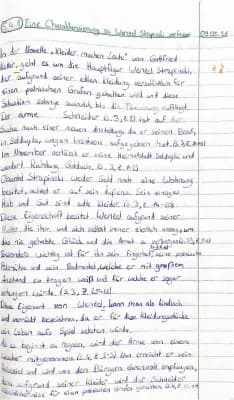 E 4.1 Eine Charakterisierung zu Wenzel Strapinski verfassen 09.02.21
In der Novelle „Kleider machen Leute" von Gottfried
Keller, geht es um die Hauptfigur Wenzel Strapinski,
der aufgrund seiner edlen Kleidung versehentlich für
einen polnischen Grafen gehalten wird und diese
Situation solange auslebt, bis die auffliegt.
Der arme Schneider (S.3, Z.2) ist auf der
Suche nach einer neuen Anstellung da er seinen Beruf,
in Seldwyla, wegen aufgegeben hat.
Im November verlässt er seine Heimatstadt Seldwyla und
wandert Richtung Goldach.
Obwohl Strapinski weder Geld noch eine Wohnung
besitzt, achtet er auf sein Äußeres. Sein einziges
Hab und Gut sind edle Kleider.
Diese Eigenschaft besitzt Wenzel aufgrund seiner
Mutter, die ihn und sich selbst immer zierlich anzog, um
das nie gehabte Glück und die Armut zu
Besonders wichtig ist für ihn sein Eigentum, seine polnische
Pelzmütze und sein Radmantel, welche er mit großem
Anstand zu tragen weiß und für welche er sogar
würde.
Diese Eigenart von Wenzel, kann man als kindisch
und verrückt bezeichnen, da er für diese Kleidungsstücke
sein Leben aufs Spiel setzten würde.
Als es beginnt zu regnen, wird der Arme von einem
mitgenommen. Dort erreicht er sein
und wird von den Bürgern empfangen,
denn aufgrund seiner Kleider wird der Schneider
für einen polnischen Grafen gehalten